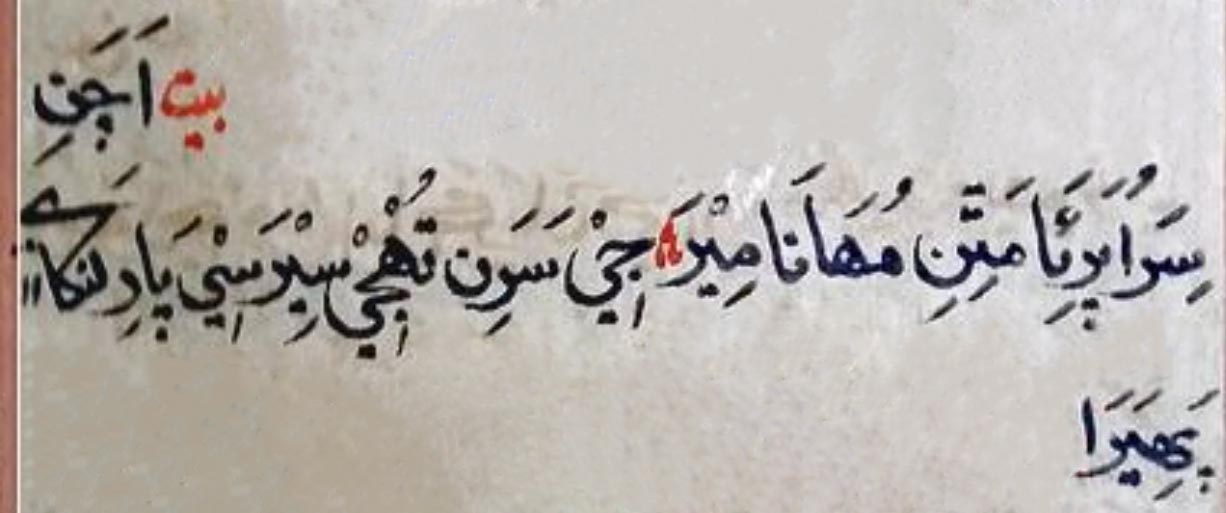 بيت اَچَنِ
سِرَ اُپَرِئَا مَتِنِ مُهَانَا مِيْرَ جِيْ سَرَنِ تُهْجِيْ سِيْرَ سِيْ پَارِ
پَهِيَرَا